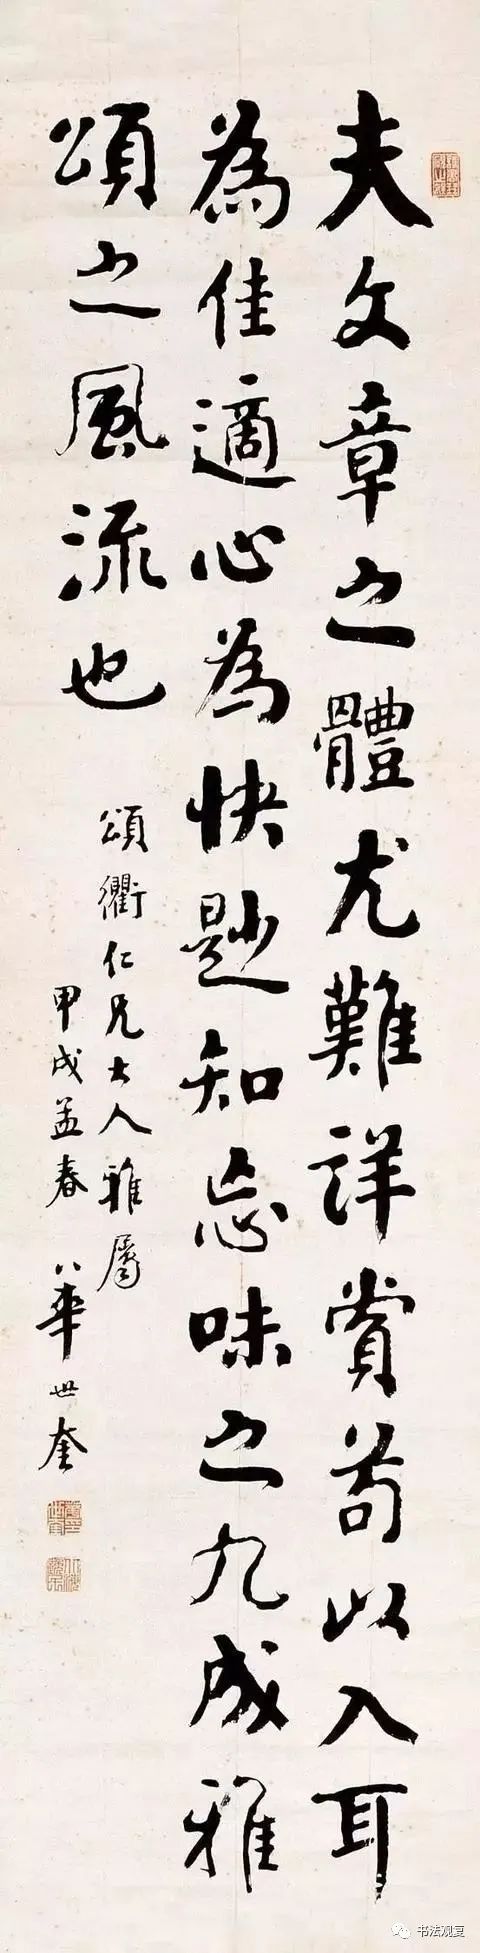 夫文章之體尤難詳賞苟以入耳
為佳適心為快尟知忘味之九成雅
頌之風流也
頌衢仁兄大人雅屬
甲戌孟春 八華世奎
书法观复